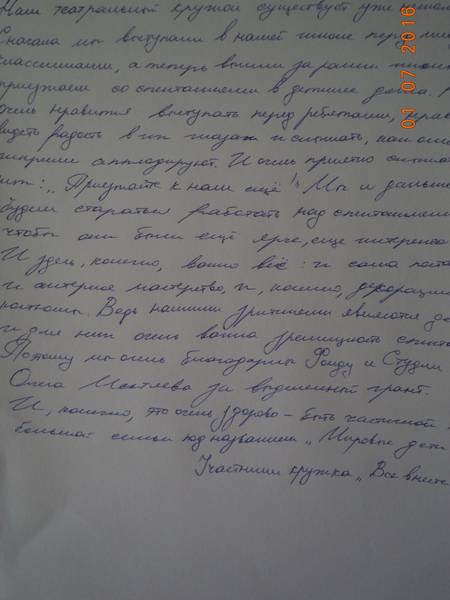 Наш театральный кружок существует уже
Сначала мы выступали в нашей школе перед
классниками, а теперь вышли за рамки
приезжаем со спектаклями в детские дома.
очень нравится выступать перед ребятами,
видеть радость в их глазах и слышать, как они
искренне аплодируют. И очень приятно
их: „Приезжайте к нам ещё!" Мы и дальше
будем стараться работать над спектаклями
чтобы они были ещё ярче, еще
И здесь, конечно, важно всё: и сама
и актерское мастерство, и, конечно, декорации
костюмы. Ведь нашими зрителями являются
и для них очень важна зрелищность
Поэтому мы очень благодарны Фонду и Студии
Олега за выделенный грант.
И, конечно, это очень здорово – быть частичкой
большой семьи под названием „Мировые дети
Участники кружка „Все вместе
01/07/2016